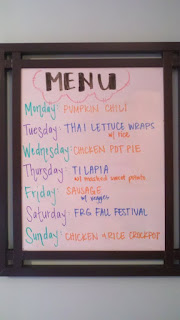 MENU
Monday: PUMPKIN CHILI
Tuesday: THAI LETTUCE WRAPS
w/ rice
Wednesday: CHICKEN POT PIE
Thursday: TILAPIA
w/ mashed sweet potato
Friday: SAUSAGE
w/ veggies
Saturday: FRG FALL FESTIVAL
Sunday: CHICKEN & RICE CROCKPOT